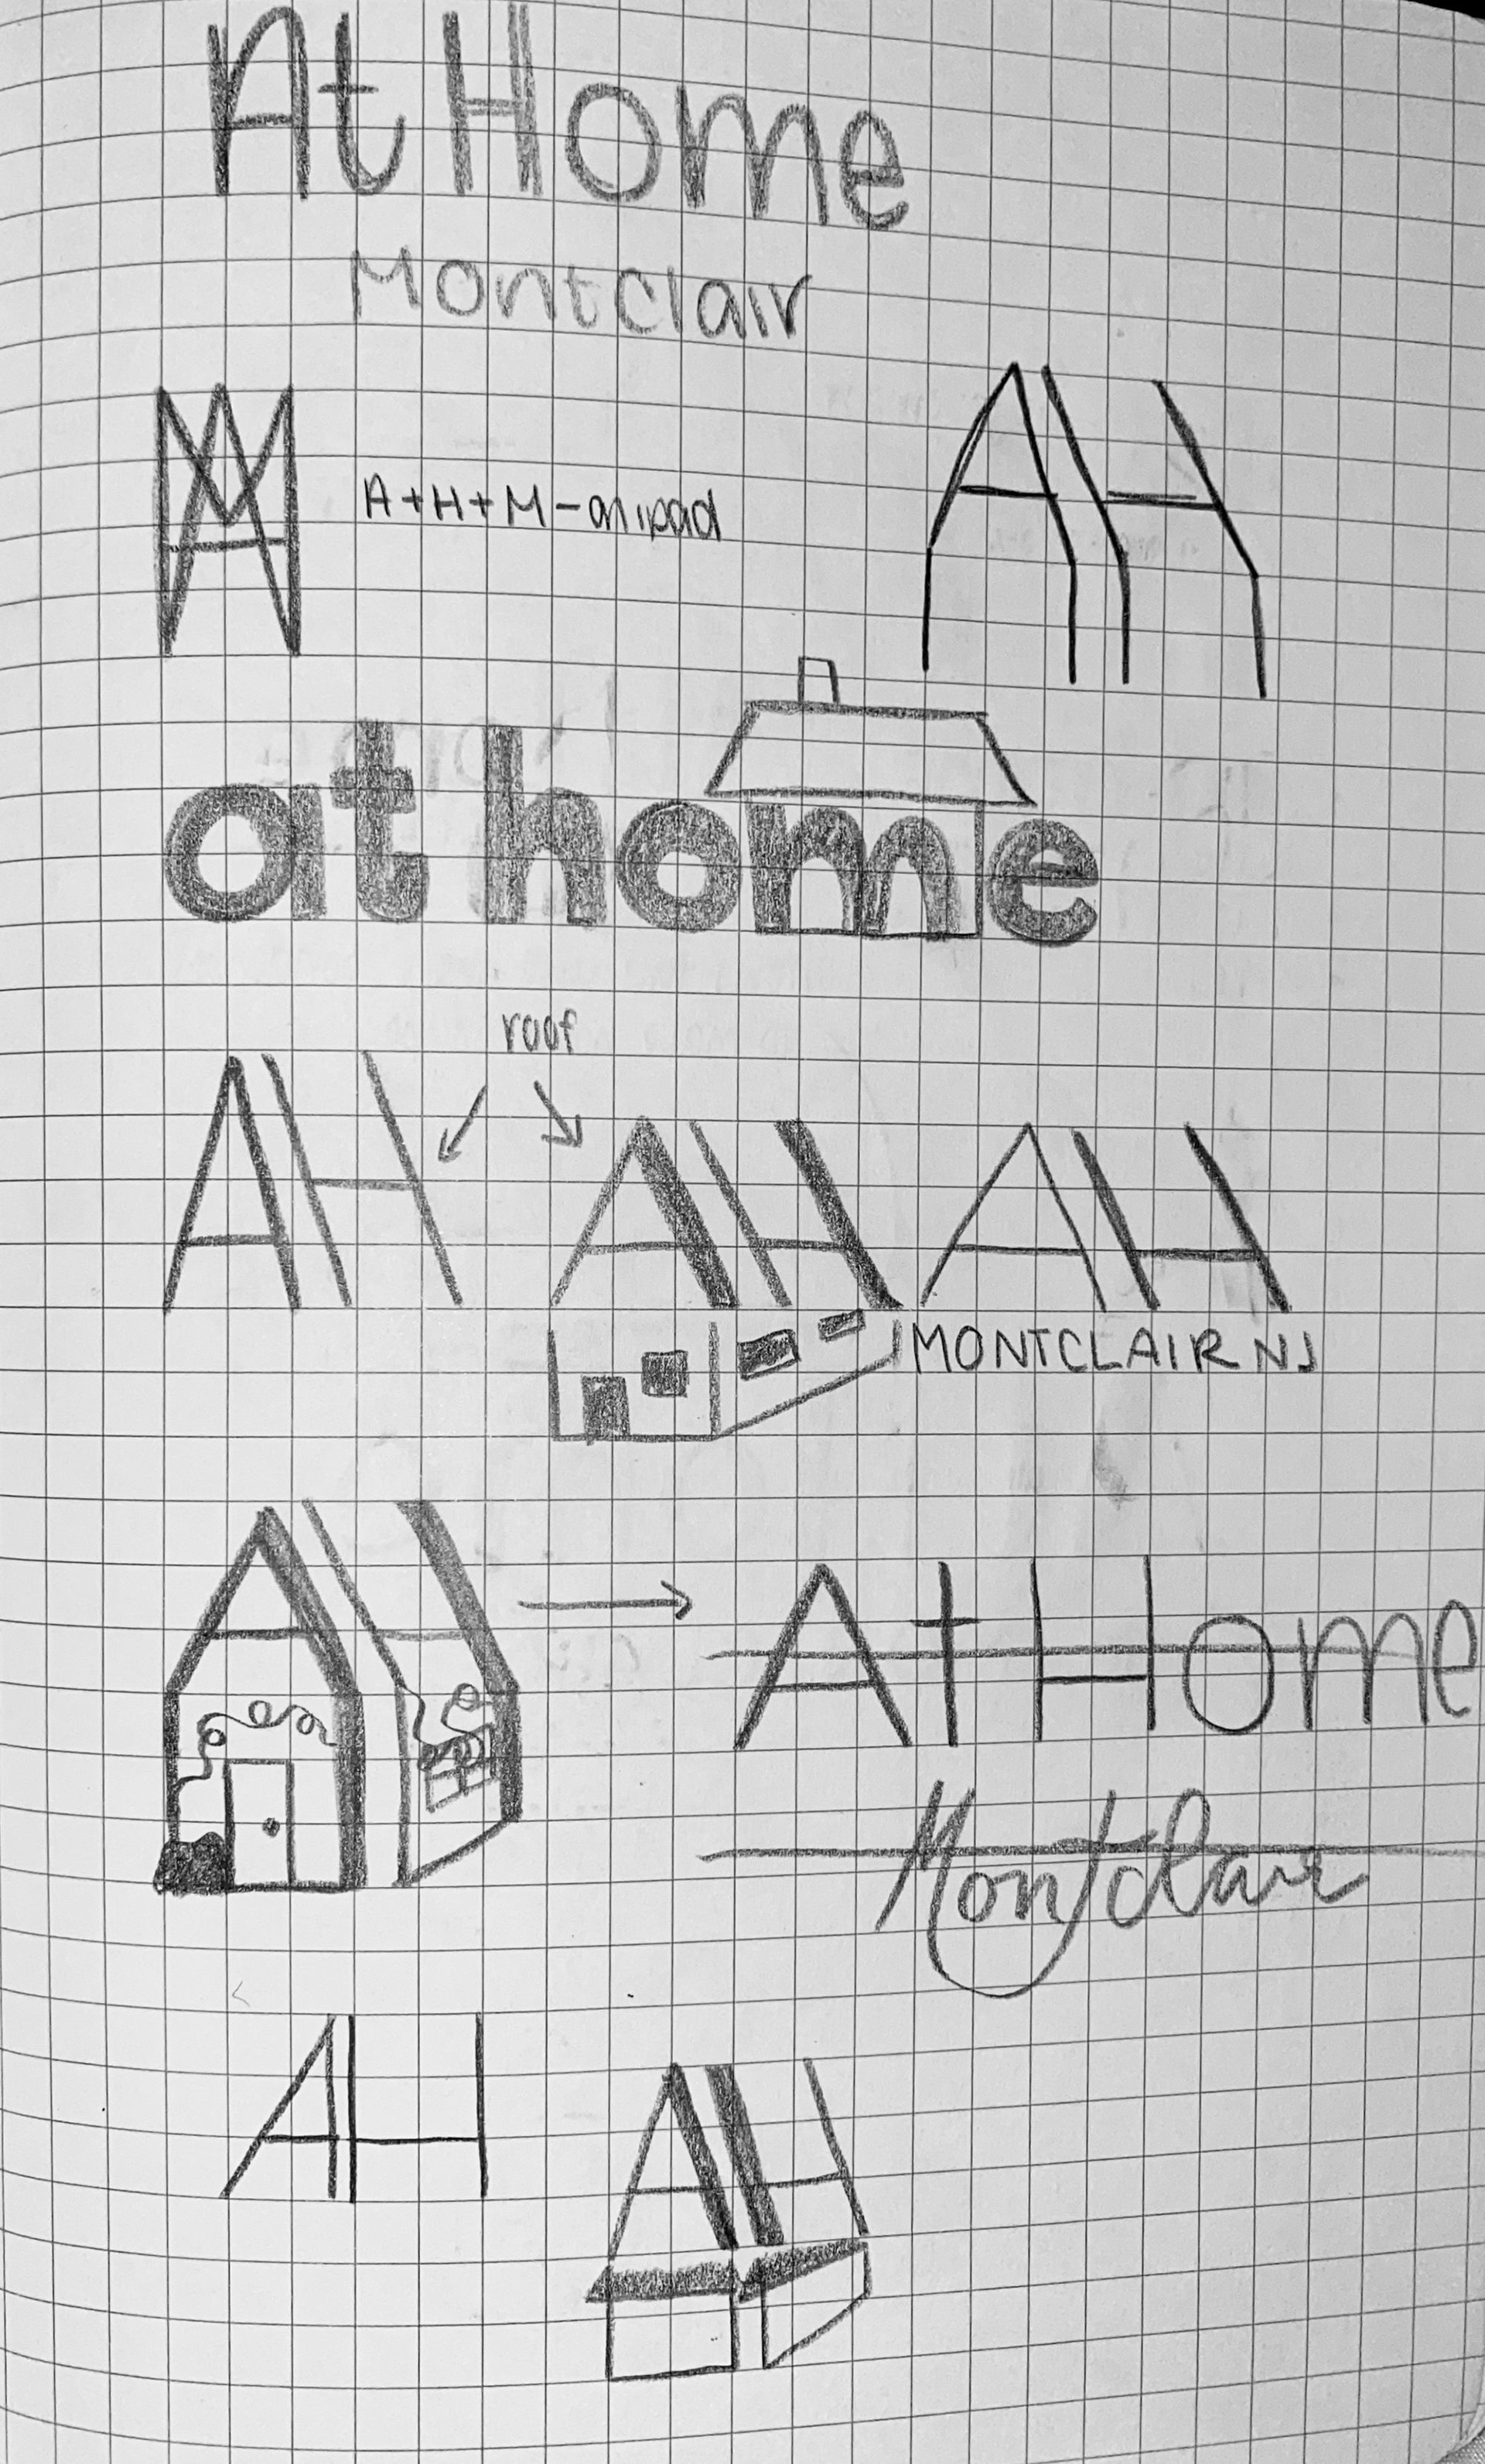 At Home
Montclair
A+H+M - on ipad
AH
at home
roof
AH
AH
AH
MONTCLAIR NJ
AH
At Home
Montclair
AH
AH